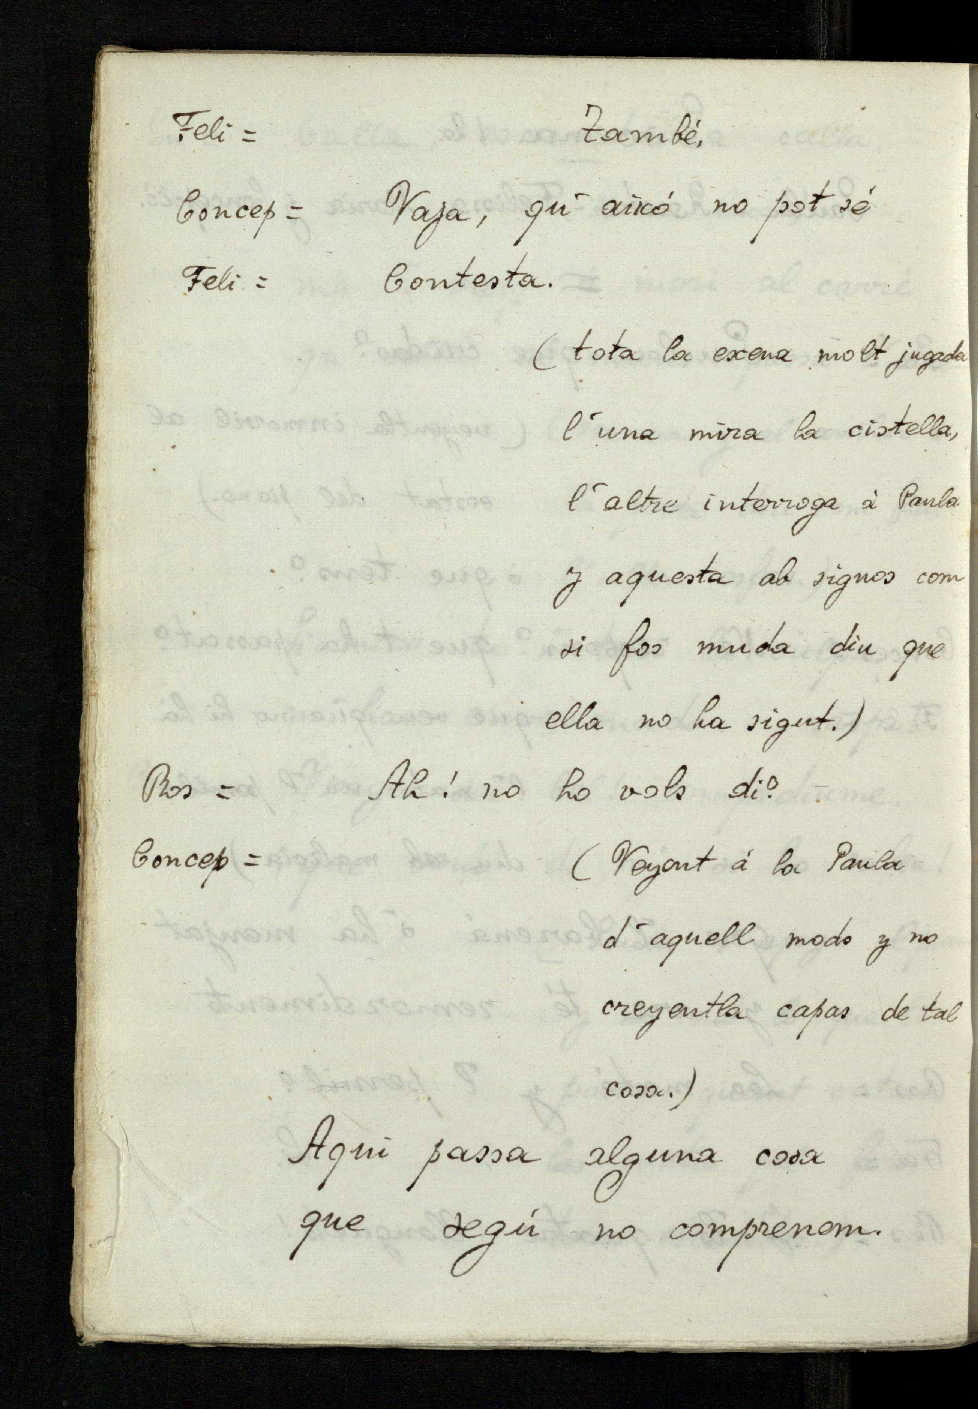 Feli = També.
Concep = Vaja, qu' aixó no pot sé
Feli = Contesta.
(tota la excena molt jugada
l'una mira la cistella,
l'altre interroga á Paula
y aquesta ab signos com
si fos muda diu que
ella no ha sigut.)
Ros = Ah! no ho vols di?
Concep = (Veyent á la Paula
d'aquell modo y no
creyentla capas de tal
cosa.)
Aqui passa alguna cosa
que segú no comprenem.